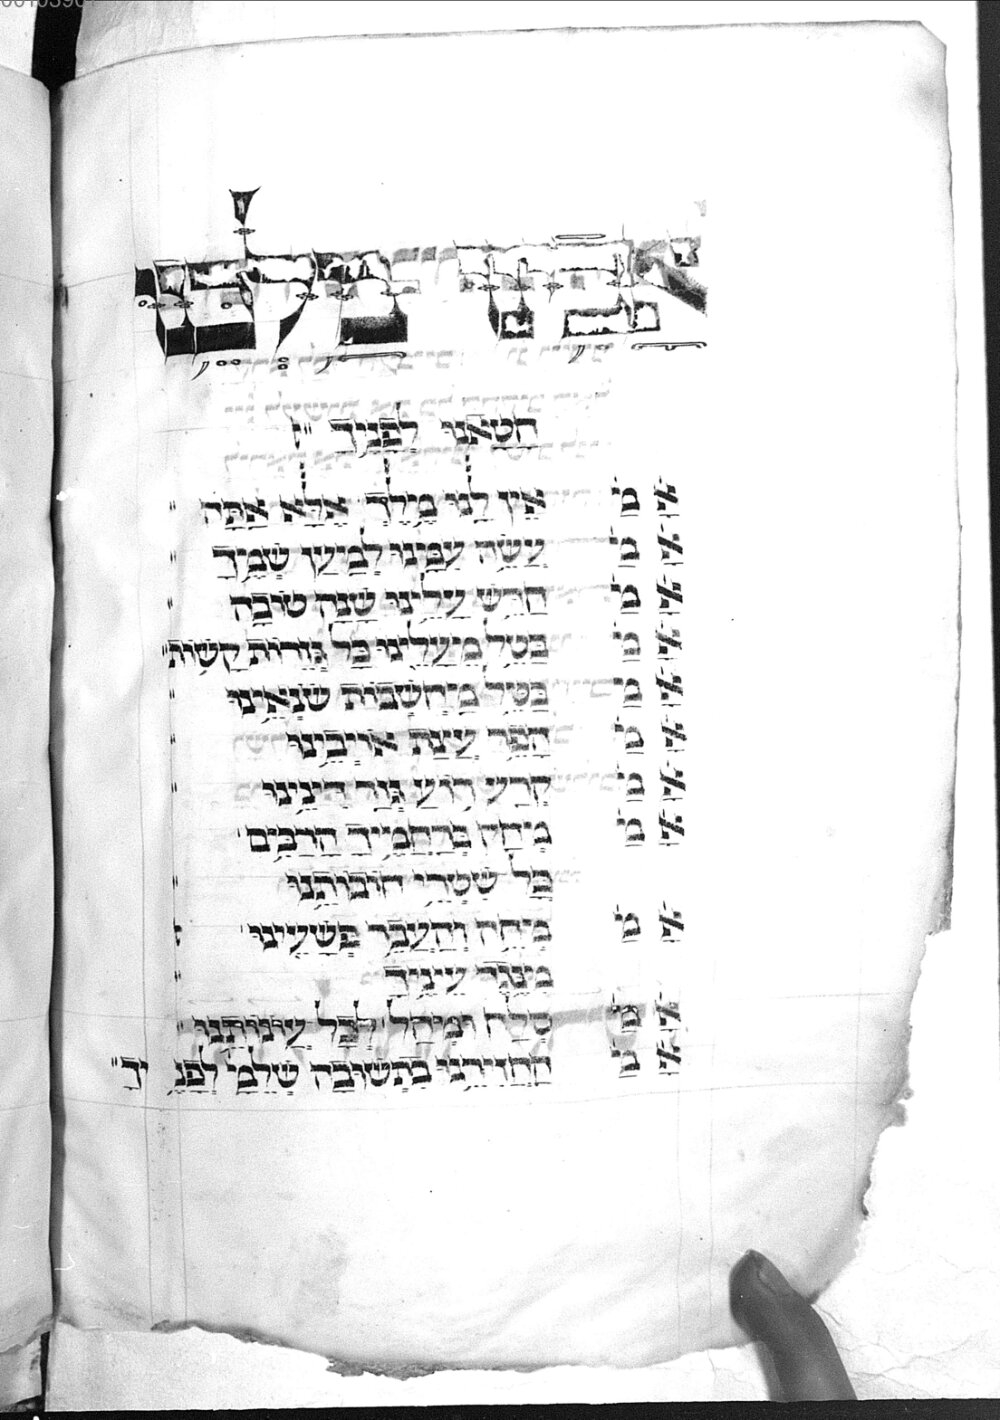 אבינו מלכנו
חטאנו לפניך
א מ אין לנו מלך אלא אתה
א מ עשה עמנו למען שמך
א מ חדש עלינו שנה טובה
א מ בטל מעלינו כל גזרות קשות
א מ בטל מחשבות שנאינו
א מ הפר עצת אוייבינו
א מ קרע רוע גזר דינינו
א מ מחה ברחמיך הרבים
כל שטרי חובותנו
א מ מחה והעבר פשעינו
מנגד עיניך
א מ סלח ומחל לכל עונותנו
א מ החזירנו בתשובה שלמ לפניך